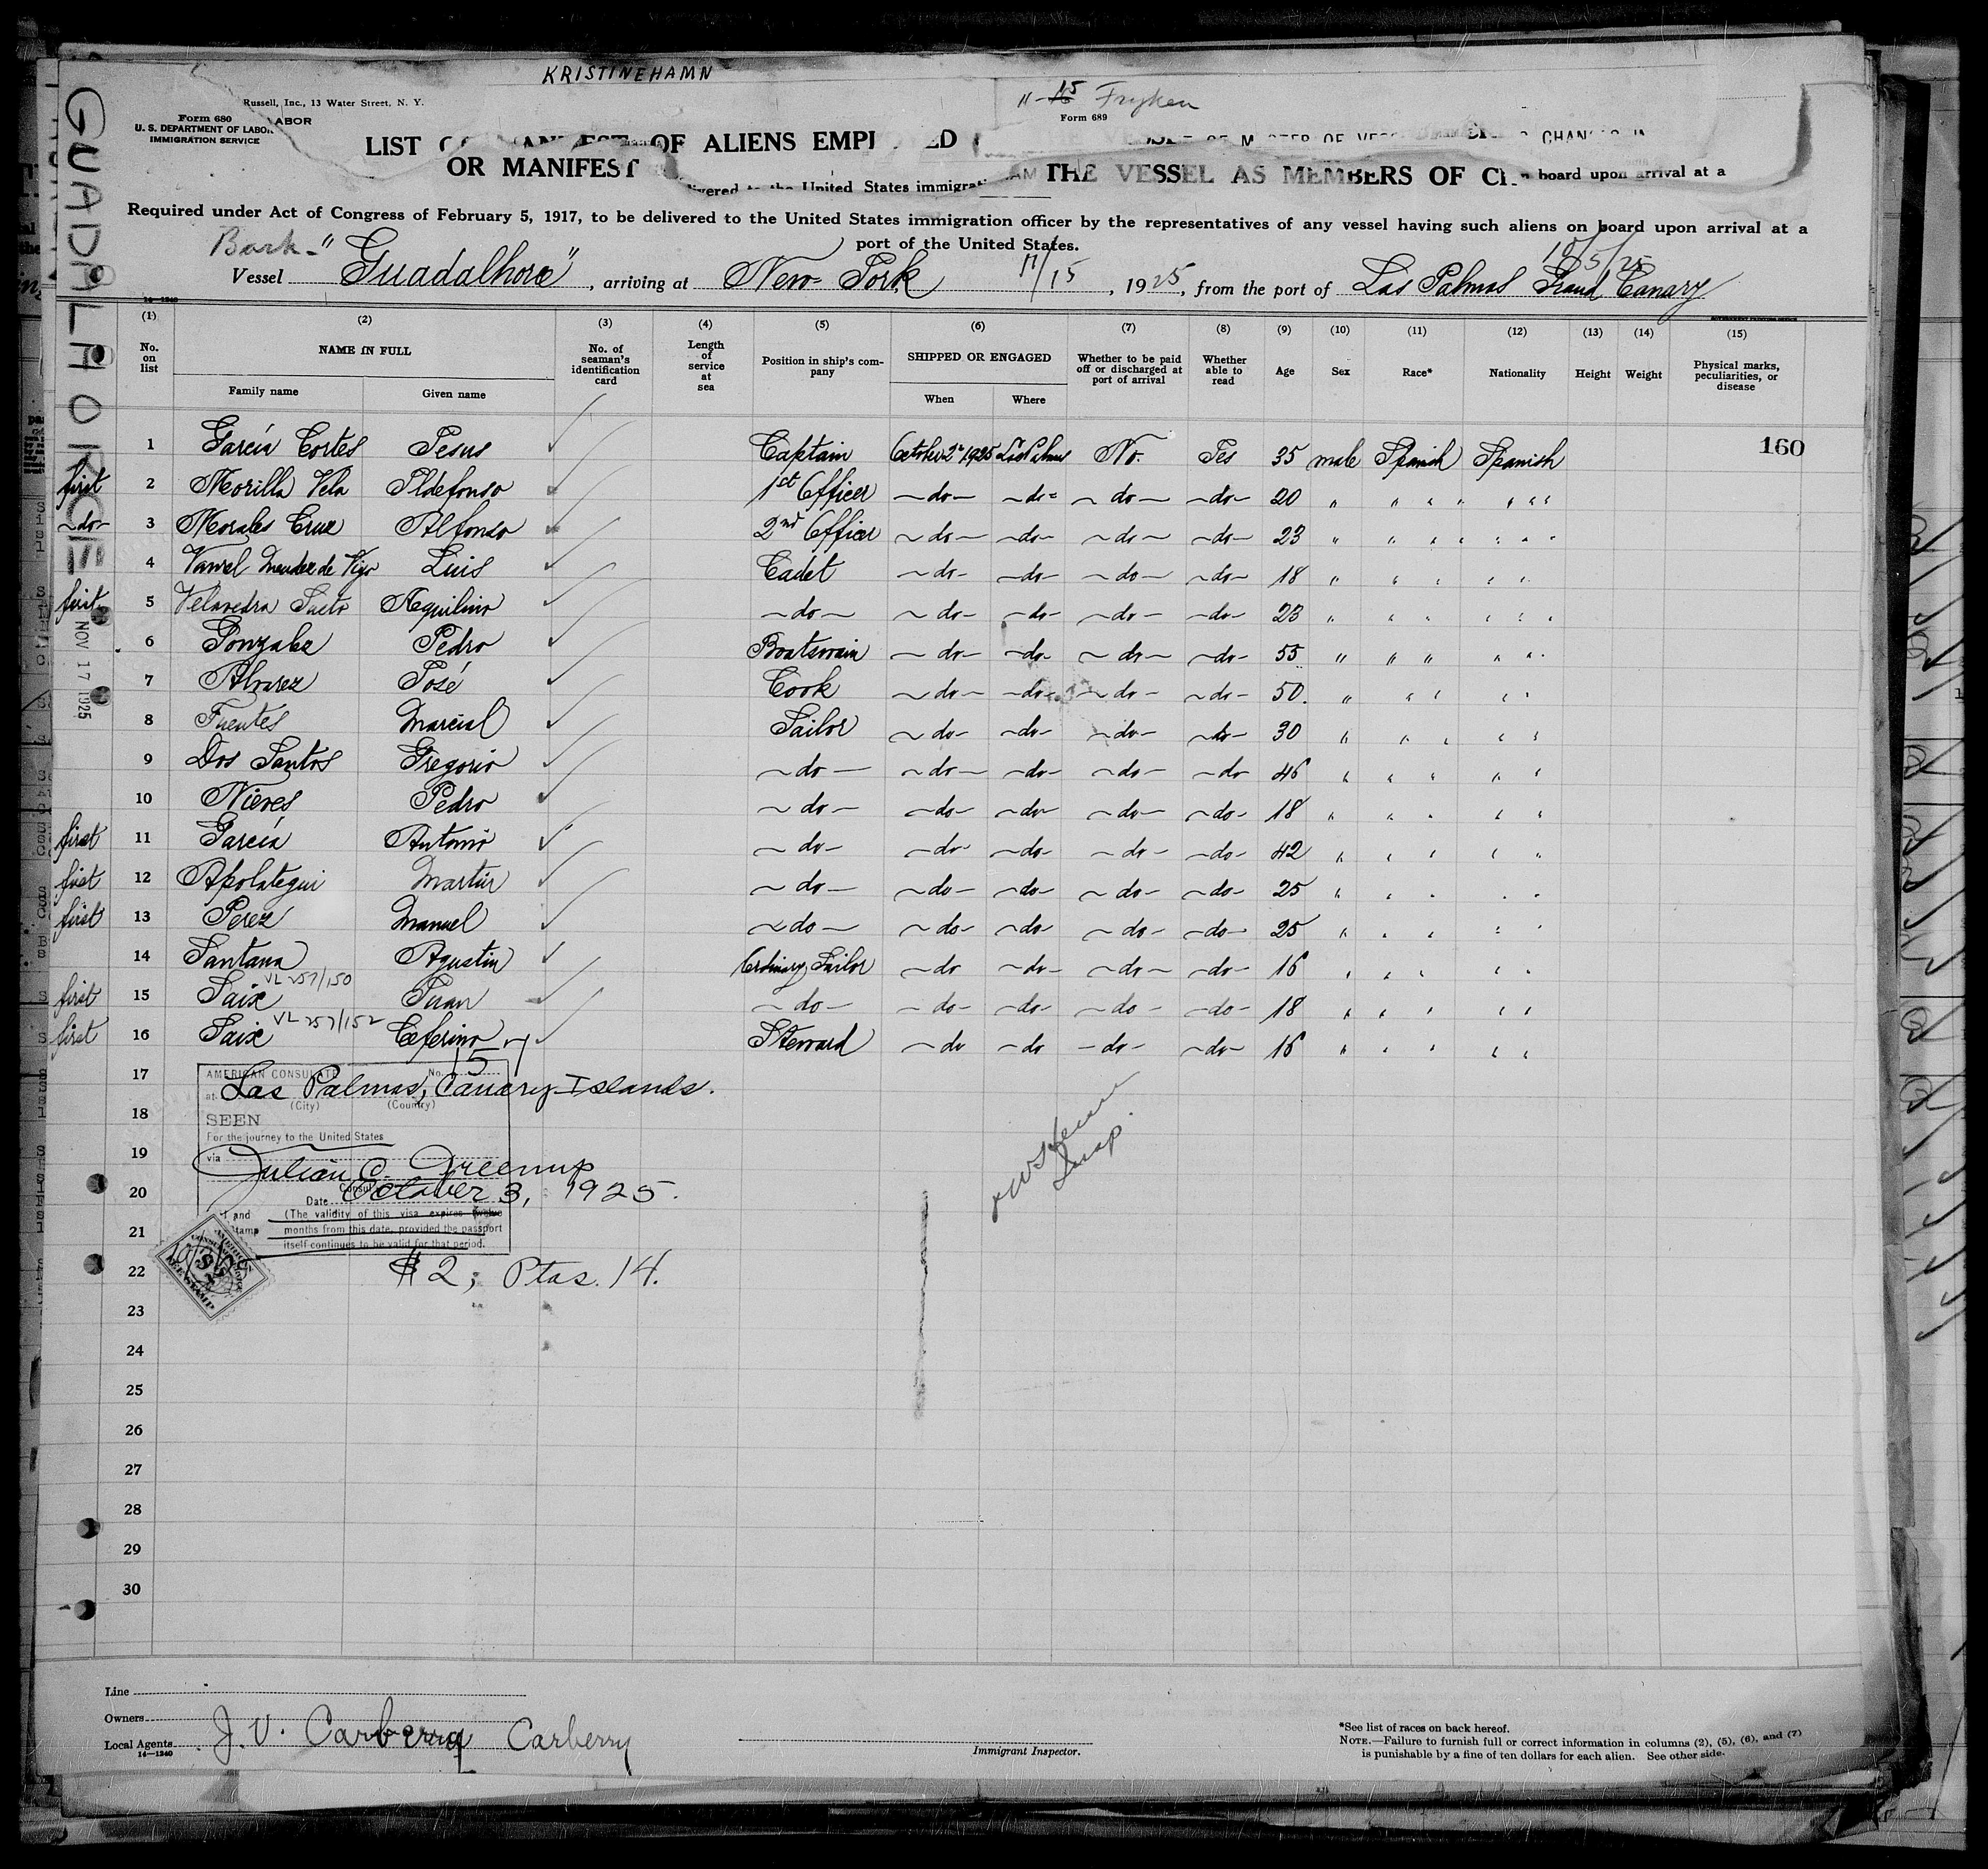 KRISTINEHAMN
Russell, Inc., 13 Water Street, N. Y.
11-15 Fryken
Form 680
LABOR
Form 689
U. S. DEPARTMENT OF LABOR
IMMIGRATION SERVICE
LIST OF ALIENS EMPLOYED
OR MANIFEST
THE VESSEL AS MEMBERS OF
board upon arrival at a
United States
Required under Act of Congress of February 5, 1917, to be delivered to the United States immigration officer by the representatives of any vessel having such aliens on board upon arrival at a
port of the United States.
Bark - 10/5/25
Vessel "Guadalhorce", arriving at New-York 11/15, 1925, from the port of Las Palmas Grand Canary
14-1240
GUADALHORCE
NOV 17 1925
(1) (2) (3) (4) (5) (6) (7) (8) (9) (10) (11) (12) (13) (14) (15)
No. on list
NAME IN FULL
Family name
Given name
No. of seaman's identification card
Length of service at sea
Position in ship's company
SHIPPED OR ENGAGED
When
Where
Whether to be paid off or discharged at port of arrival
Whether able to read
Age
Sex
Race*
Nationality
Height
Weight
Physical marks, peculiarities, or disease
1 García Cortes Jesus Captain October 2 1925 Las Palmas No. Yes 35 male Spanish Spanish 160
first 2 Morilla Vela Ildefonso 1st Officer -do- -do- -do- -do- 20 " " " " " " "
-do- 3 Morales Cruz Alfonso 2nd Officer -do- -do- -do- -do- 23 " " " " " " "
4 Luis Cadet -do- -do- -do- -do- 18 " " " " "
first 5 Aquilino -do- -do- -do- -do- -do- 23 " " " " " "
6 Gonzalez Pedro Boatswain -do- -do- -do- -do- 55 " " " " "
7 Alvarez José Cook -do- -do- -do- -do- 50. " " " " "
8 Fuentes Marcial Sailor -do- -do- -do- -do- 30 " " " " "
9 Dos Santos Gregorio -do- -do- -do- -do- -do 46 " " " " "
10 Nieves Pedro -do- -do- -do- -do- -do- 18 " " " " "
first 11 García Antonio -do- -do- -do- -do- -do- 42 " " " " "
first 12 Apolategui Martin -do- -do- -do- -do- -do- 25 " " " " "
first 13 Perez Manuel -do- -do- -do- -do- -do- 25 " " " " "
14 Santana Agustin Ordinary Sailor -do -do- -do- -do- 16 " " " " "
VL 257/150
first 15 Saix Juan -do- -do- -do- -do- -do- 18 " " " " "
VL 257/152
first 16 Saix Ceferino Steward -do -do -do- -do- 16 " " " " "
17
AMERICAN CONSULATE No. 57
at Las Palmas, Canary Islands.
(City) (Country)
18
SEEN
For the journey to the United States
19
via
Julian C. Greenup
20
Consul
Date October 3, 1925.
and
(The validity of this visa expires twelve
21
stamp months from this date, provided the passport
itself continues to be valid for that period.
AMERICAN CONSULAR SERVICE
$2
FEE STAMP
22
$2; Ptas. 14.
23
24
25
26
27
28
29
30
Line
Owners
Local Agents J. V. Carberry Carberry
14-1240
Immigrant Inspector.
*See list of races on back hereof.
NOTE.—Failure to furnish full or correct information in columns (2), (5), (6), and (7)
is punishable by a fine of ten dollars for each alien. See other side.